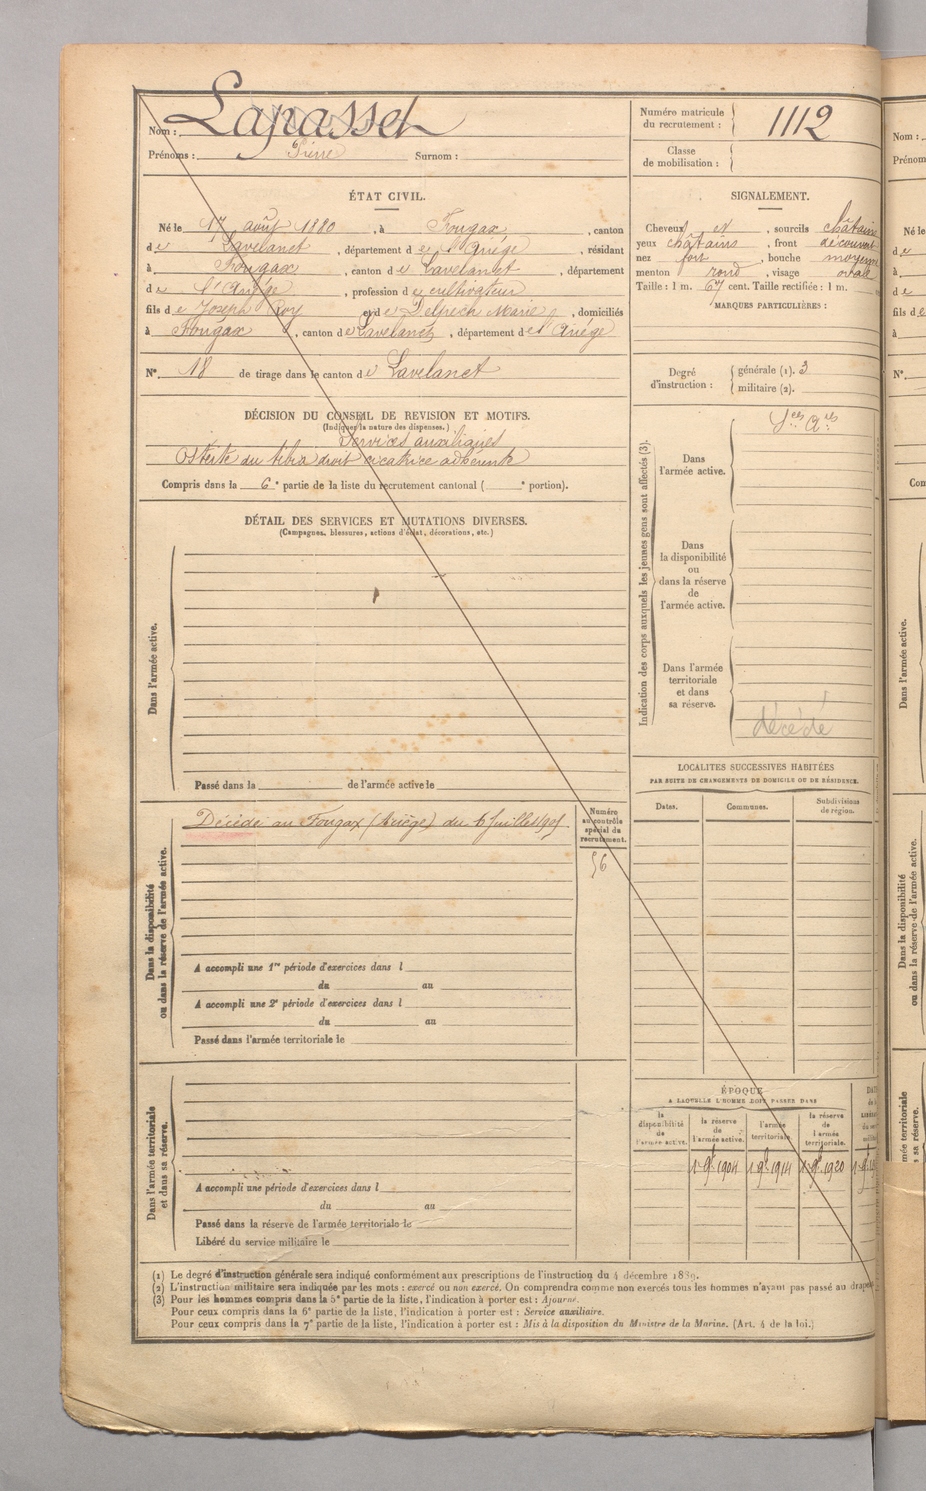 Nom : Lapasset
Prénoms : Pierre Surnom :
Numéro matricule du recrutement : 1112
Classe de mobilisation :
ÉTAT CIVIL.
Né le 17 août 1880, à Fougax, canton
de Lavelanet, département de l'Ariége, résidant
à Fougax, canton de Lavelanet, département
de l'Ariége, profession de cultivateur
fils de Joseph Roy et de Delpech Marie, domiciliés
à Fougax, canton de Lavelanet, département de l'Ariége
N° 18 de tirage dans le canton de Lavelanet
SIGNALEMENT.
Cheveux et, sourcils châtains
yeux châtains, front découvert
nez fort, bouche moyenne
menton rond, visage ovale
Taille : 1 m. 67 cent. Taille rectifiée : 1 m.
MARQUES PARTICULIÈRES :
Degré d'instruction : générale (1). 3
militaire (2).
DÉCISION DU CONSEIL DE REVISION ET MOTIFS.
(Indiquer la nature des dispenses.)
Services auxiliaires
Ostéite du tibia droit cicatrice adhérente
Compris dans la 6e partie de la liste du recrutement cantonal ( e portion).
DÉTAIL DES SERVICES ET MUTATIONS DIVERSES.
(Campagnes, blessures, actions d'éclat, décorations, etc.)
Dans l'armée active.
Passé dans la de l'armée active le
Indication des corps auxquels les jeunes gens sont affectés (3).
Dans l'armée active.
Sces Ares
Dans la disponibilité ou dans la réserve de l'armée active.
Dans l'armée territoriale et dans sa réserve.
décédé
LOCALITÉS SUCCESSIVES HABITÉES
PAR SUITE DE CHANGEMENTS DE DOMICILE OU DE RÉSIDENCE.
Dates. Communes. Subdivisions de région.
Dans la disponibilité ou dans la réserve de l'armée active.
Décédé au Fougax (Ariège) du 6 Juillet 1905
Numéro au contrôle spécial du recrutement.
56
A accompli une 1re période d'exercices dans l
du au
A accompli une 2e période d'exercices dans l
du au
Passé dans l'armée territoriale le
Dans l'armée territoriale et dans sa réserve.
A accompli une période d'exercices dans l
du au
Passé dans la réserve de l'armée territoriale le
Libéré du service militaire le
ÉPOQUE
A LAQUELLE L'HOMME DOIT PASSER DANS
la disponibilité de l'armée active. la réserve de l'armée active. l'armée territoriale. la réserve de l'armée territoriale.
1 9bre 1904 1 9bre 1914 1 9bre 1920
(1) Le degré d'instruction générale sera indiqué conformément aux prescriptions de l'instruction du 4 décembre 1889.
(2) L'instruction militaire sera indiquée par les mots : exercé ou non exercé. On comprendra comme non exercés tous les hommes n'ayant pas passé au drapeau
(3) Pour les hommes compris dans la 5e partie de la liste, l'indication à porter est : Ajourné.
Pour ceux compris dans la 6e partie de la liste, l'indication à porter est : Service auxiliaire.
Pour ceux compris dans la 7e partie de la liste, l'indication à porter est : Mis à la disposition du Ministre de la Marine. (Art. 4 de la loi.)